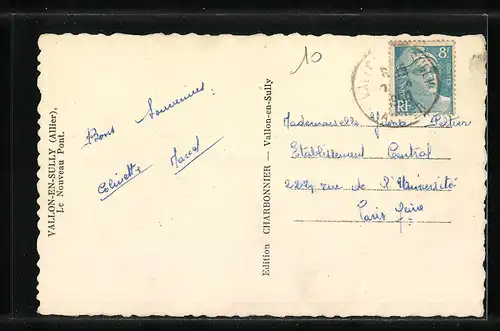 VALLON-EN-SULLY (Allier).
Le Nouveau Pont.
Bons Souvenirs
Colinette Marcel
Edition CHARBONNIER — Vallon-en-Sully
10
8F
RF
Mademoiselle Peltier
Etablissement Central
222 rue de l'Université
Paris 7eme